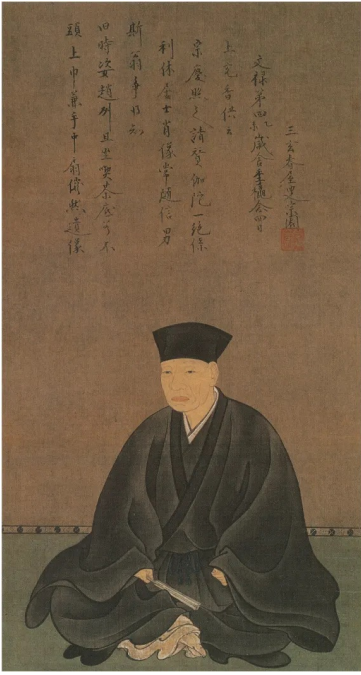 頭上巾兼手中扇儼然遺像
旧時姿趙州且坐喫茶底若不
斯翁争得知
利休居士肖像常随信男
宗慶照之請賛伽陀一絶係
上宛香供云
文禄第四乙歳舎季穐念四日
三玄春屋叟宗園